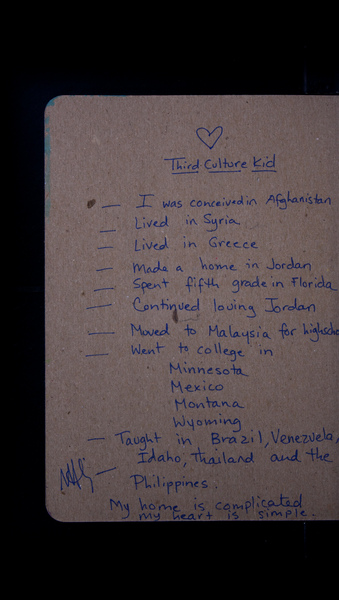 Third Culture Kid
— I was conceived in Afghanistan
— Lived in Syria
— Lived in Greece
— Made a home in Jordan
— Spent fifth grade in Florida
— Continued loving Jordan
— Moved to Malaysia for highscho
— Went to college in
Minnesota
Mexico
Montana
Wyoming
— Taught in Brazil, Venezuela,
Idaho, Thailand and the
— Philippines.
My home is complicated
my heart is simple.